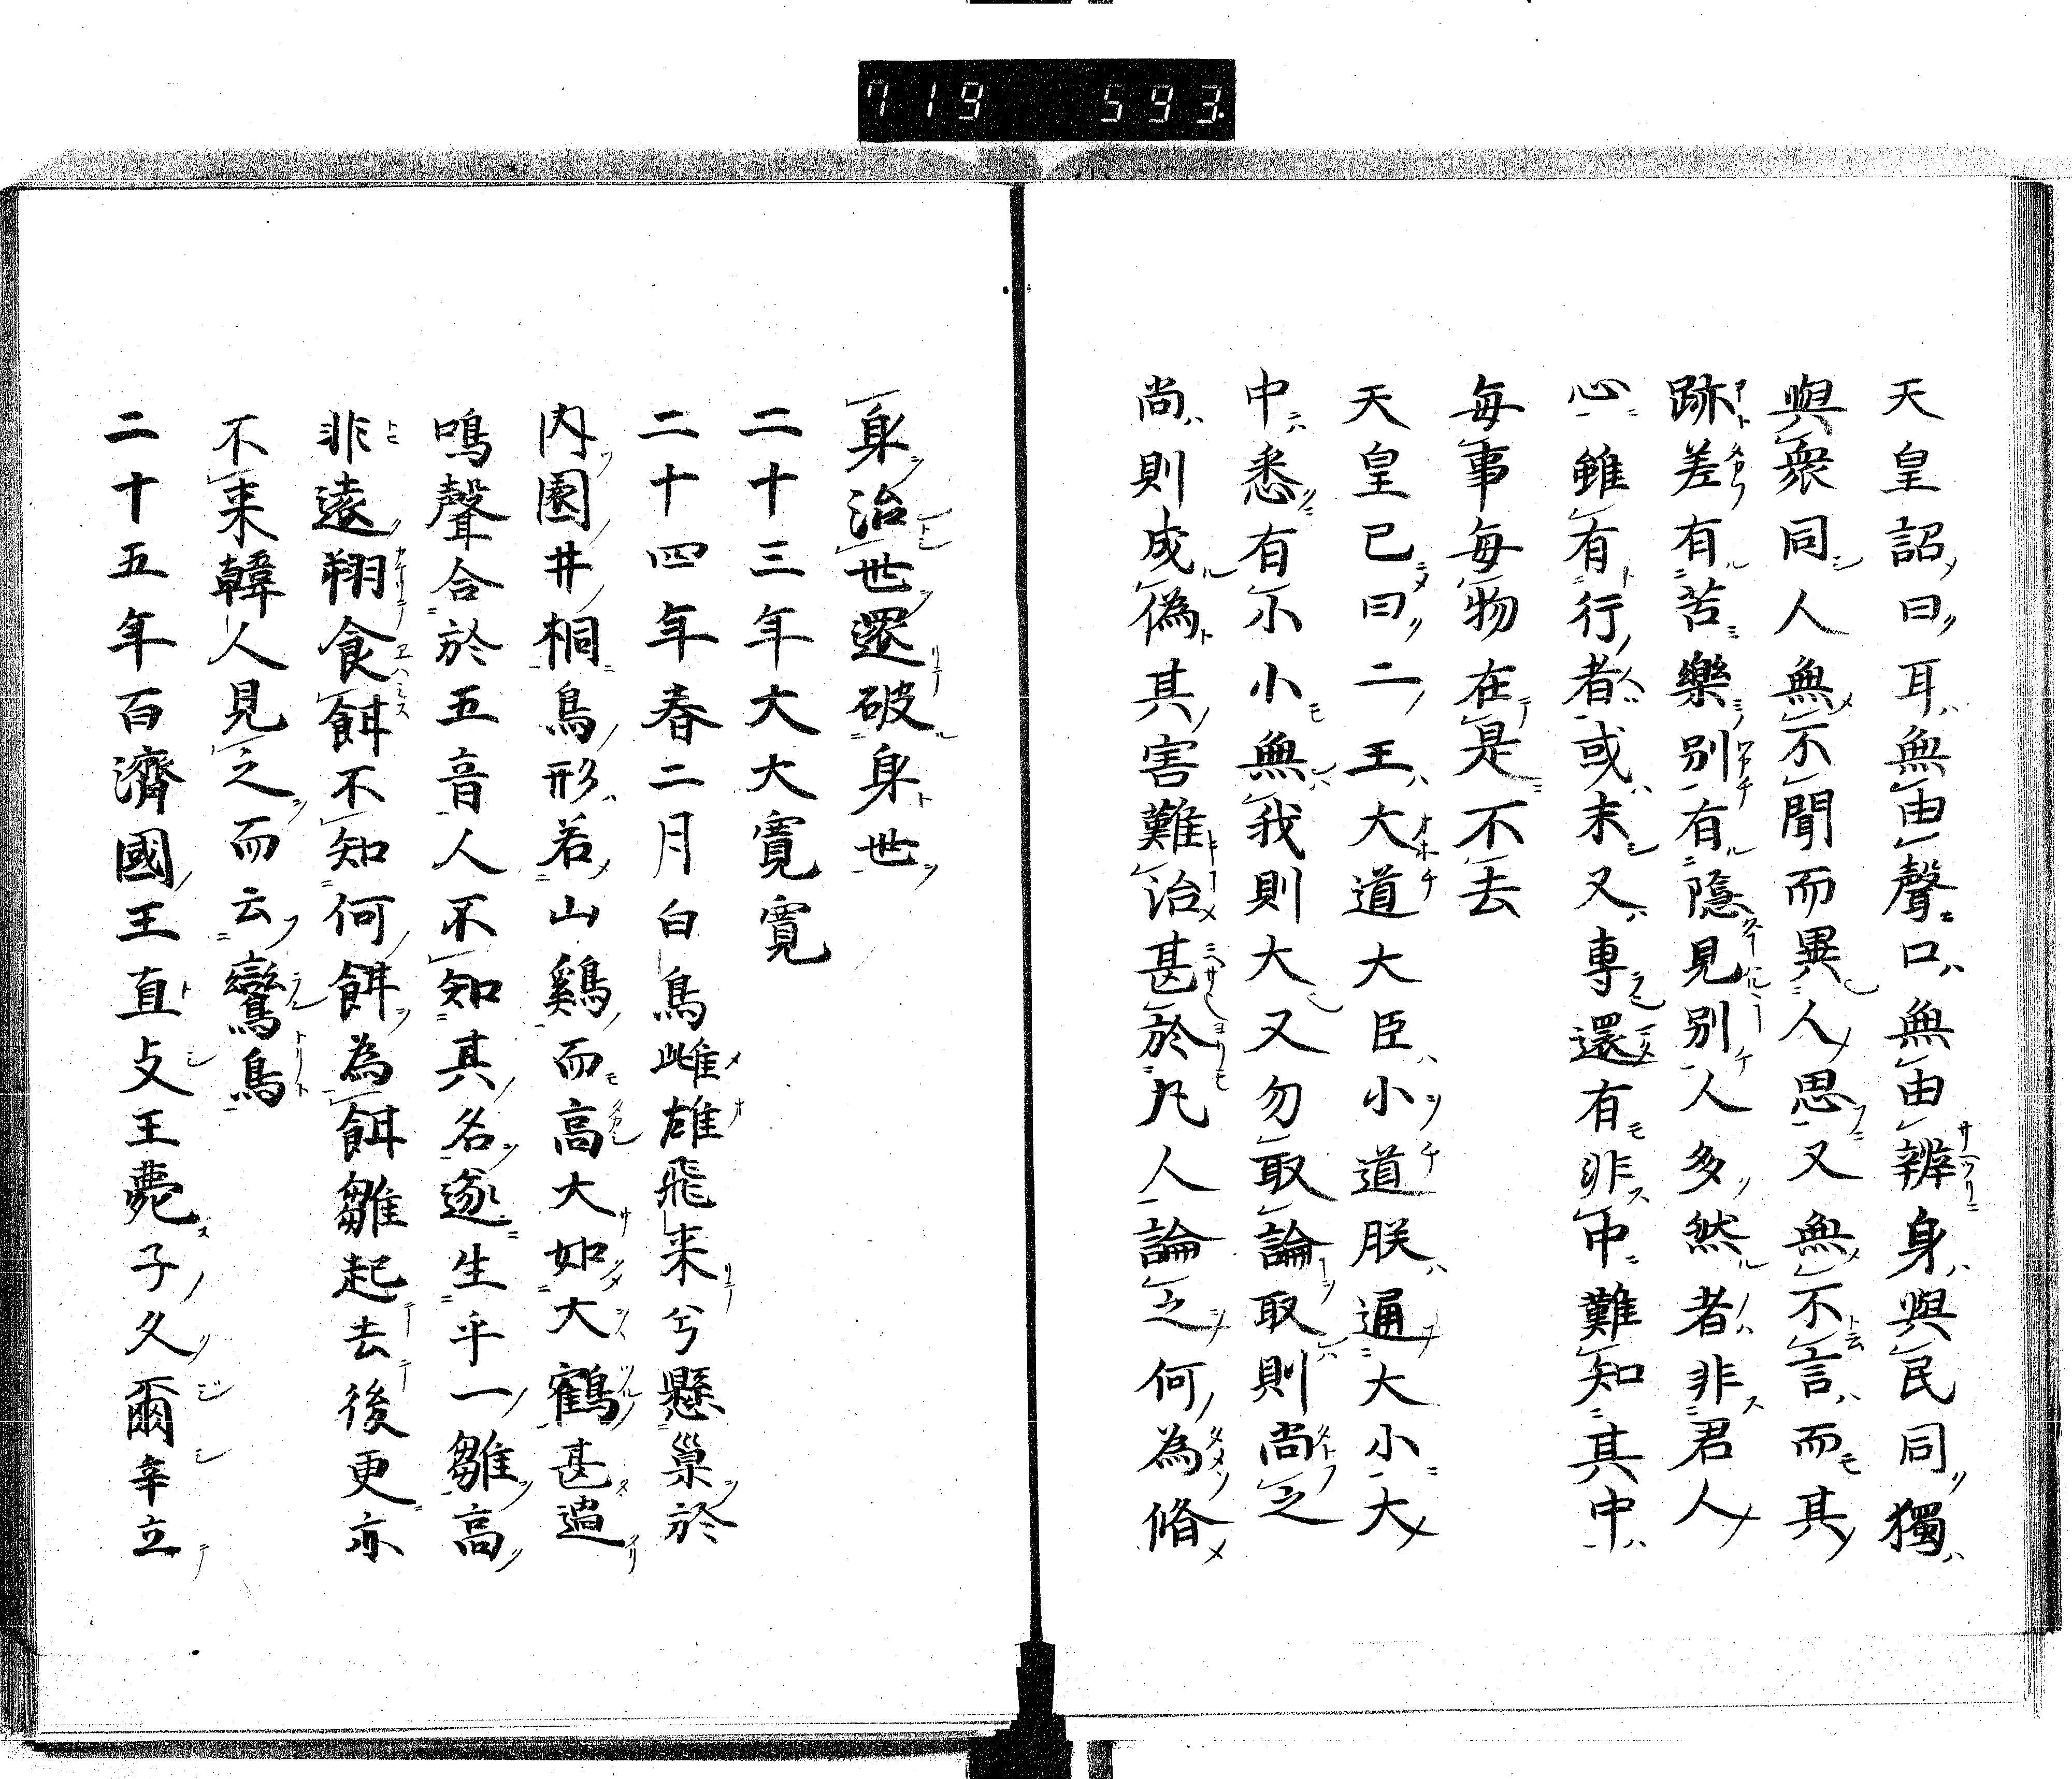 719 593
天皇詔曰耳無由聲口無由辨身與民同獨
與衆同人無不聞而異人思又無不言而其
跡差有苦樂別有隱見別人多然者非君人
心雖有行者或末又專還有非中難知其中
毎事毎物在是不去
天皇已曰二王大道大臣小道朕通大小大
中悉有小小無我則大又勿取論取則尚之
尚則成偽其害難治甚於凡人論之何為脩
身治世還破身世
二十三年大大寛寛
二十四年春二月白鳥雌雄飛来兮懸巣於
内園井桐鳥形若山鷄而高大如大鶴甚遒
鳴聲合於五音人不知其名逐生乎一雛高
非遠翔食餌不知何餌為餌雛起去後更亦
不来韓人見之而云鸞鳥
二十五年百濟國王直支王薨子久爾辛立